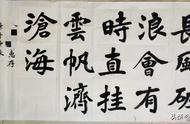 長風破
浪會有
時直挂
雲帆濟
滄海
惠存